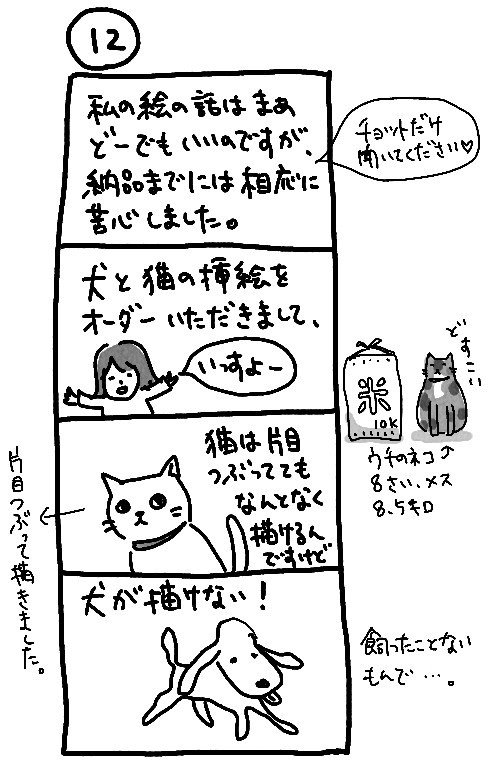 12
私の絵の話はまあ
どーでもいいのですが、
納品までには相応に
苦心しました。
チョットだけ
聞いてください♡
犬と猫の挿絵を
オーダーいただきまして、
いっすよー
どすこい
米
10K
ウチのネコ⤴
8さい、メス
8.5キロ
猫は片目
つぶってても
なんとなく
描けるん
ですけど
片目つぶって描きました。
犬が描けない!
飼ったことない
もんで…。